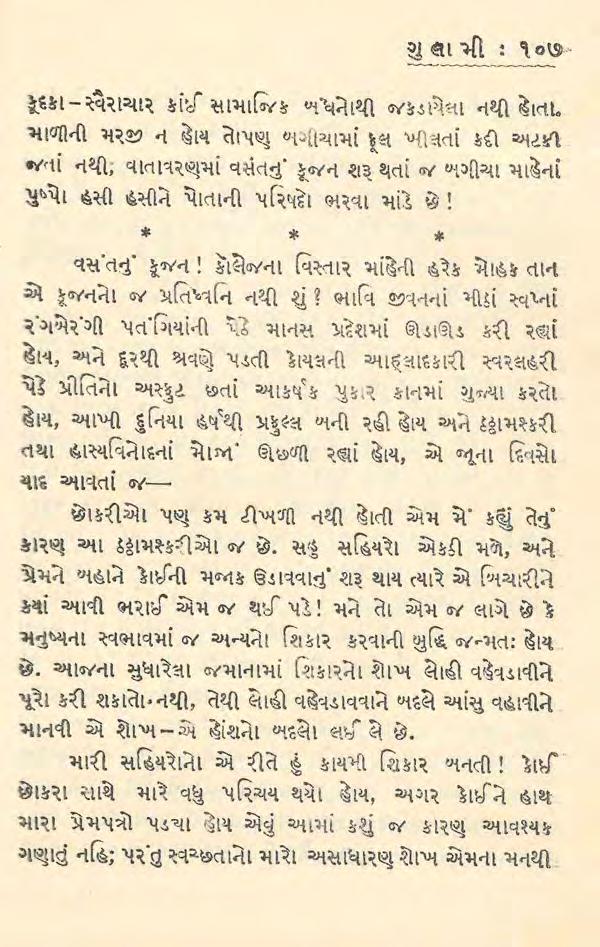 ગુલામી : ૧૦૭
કૂદકા – સ્વૈરાચાર કાંઈ સામાજિક બંધનોથી જકડાયેલા નથી હોતા.
માળીની મરજી ન હોય તોપણ બગીચામાં ફૂલ ખીલતાં કદી અટકી
જતાં નથી; વાતાવરણમાં વસંતનું કૂજન શરૂ થતાં જ બગીચા માહેનાં
પુષ્પો હસી હસીને પોતાની પરિષદો ભરવા માંડે છે !
* * *
વસંતનું કૂજન ! કૉલેજના વિસ્તાર માંહેની હરેક મોહક તાન
એ કૂજનનો જ પ્રતિધ્વનિ નથી શું ? ભાવિ જીવનનાં મીઠાં સ્વપ્નાં
રંગબેરંગી પતંગિયાંની પેઠે માનસ પ્રદેશમાં ઊડાઊડ કરી રહ્યાં
હોય, અને દૂરથી શ્રવણે પડતી કોયલની આહ્‌લાદકારી સ્વરલહરી
પેઠે પ્રીતિનો અસ્ફુટ છતાં આકર્ષક પુકાર કાનમાં ગુંજ્યા કરતો
હોય, આખી દુનિયા હર્ષથી પ્રફુલ્લ બની રહી હોય અને ઠઠ્ઠામશ્કરી
તથા હાસ્યવિનોદનાં મોજાં ઊછળી રહ્યાં હોય, એ જૂના દિવસો
યાદ આવતાં જ—
છોકરીઓ પણ કમ ટીખળી નથી હોતી એમ મેં કહ્યું તેનું
કારણ આ ઠઠ્ઠામશ્કરીઓ જ છે. સહુ સહિયરો એકઠી મળે, અને
પ્રેમને બહાને કોઈની મજાક ઉડાવવાનું શરૂ થાય ત્યારે એ બિચારીને
ક્યાં આવી ભરાઈ એમ જ થઈ પડે ! મને તો એમ જ લાગે છે કે
મનુષ્યના સ્વભાવમાં જ અન્યનો શિકાર કરવાની બુદ્ધિ જન્મતઃ હોય
છે. આજના સુધારેલા જમાનામાં શિકારનો શોખ લોહી વહેવડાવીને
પૂરો કરી શકાતો નથી, તેથી લોહી વહેવડાવવાને બદલે આંસુ વહાવીને
માનવી એ શોખ – એ હોંશનો બદલો લઈ લે છે.
મારી સહિયરોનો એ રીતે હું કાયમી શિકાર બનતી ! કોઈ
છોકરા સાથે મારે વધુ પરિચય થયો હોય, અગર કોઈને હાથ
મારા પ્રેમપત્રો પડ્યા હોય એવું આમાં કશું જ કારણ આવશ્યક
ગણાતું નહિ; પરંતુ સ્વચ્છતાનો મારો અસાધારણ શોખ એમના મનથી